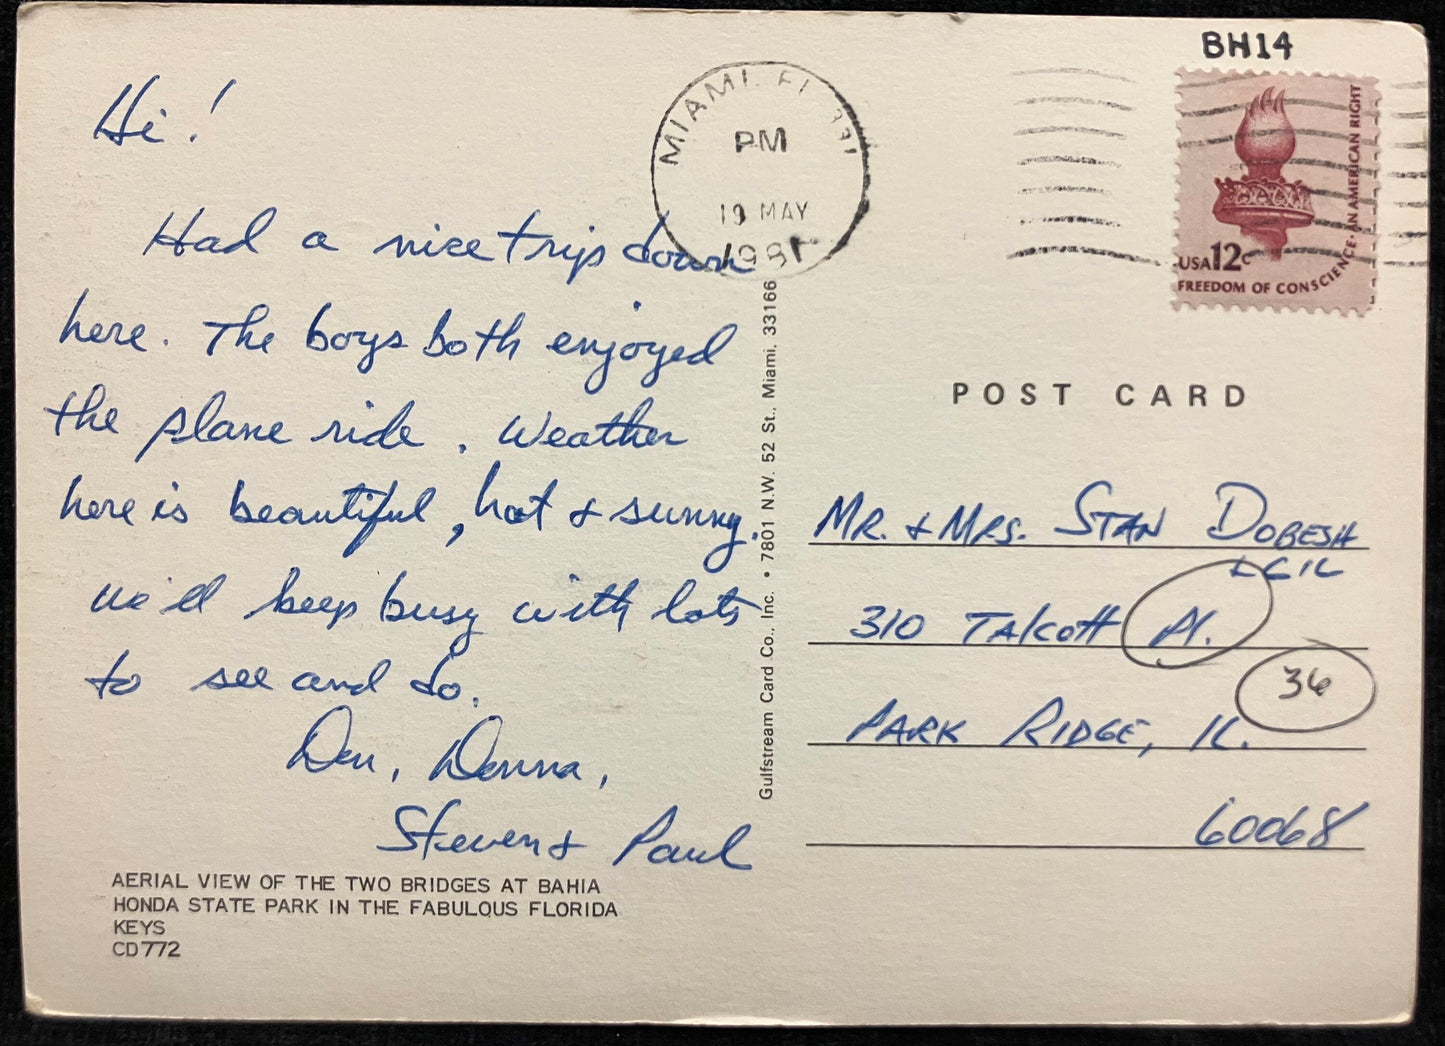 Hi!
Had a nice trip down
here. The boys both enjoyed
the plane ride. Weather
here is beautiful, hot & sunny.
We'll keep busy with lots
to see and do.
Den, Donna,
Steven & Paul
AERIAL VIEW OF THE TWO BRIDGES AT BAHIA
HONDA STATE PARK IN THE FABULOUS FLORIDA
KEYS
CD772
Gulfstream Card Co., Inc. • 7801 N.W. 52 St., Miami, 33166
MIAMI, FL 331
PM
19 MAY
1981
BH14
USA 12c
FREEDOM OF CONSCIENCE·AN AMERICAN RIGHT
POST CARD
MR. & MRS. STAN DOBESH
310 Talcott Pl.
36
PARK RIDGE, IL.
60068